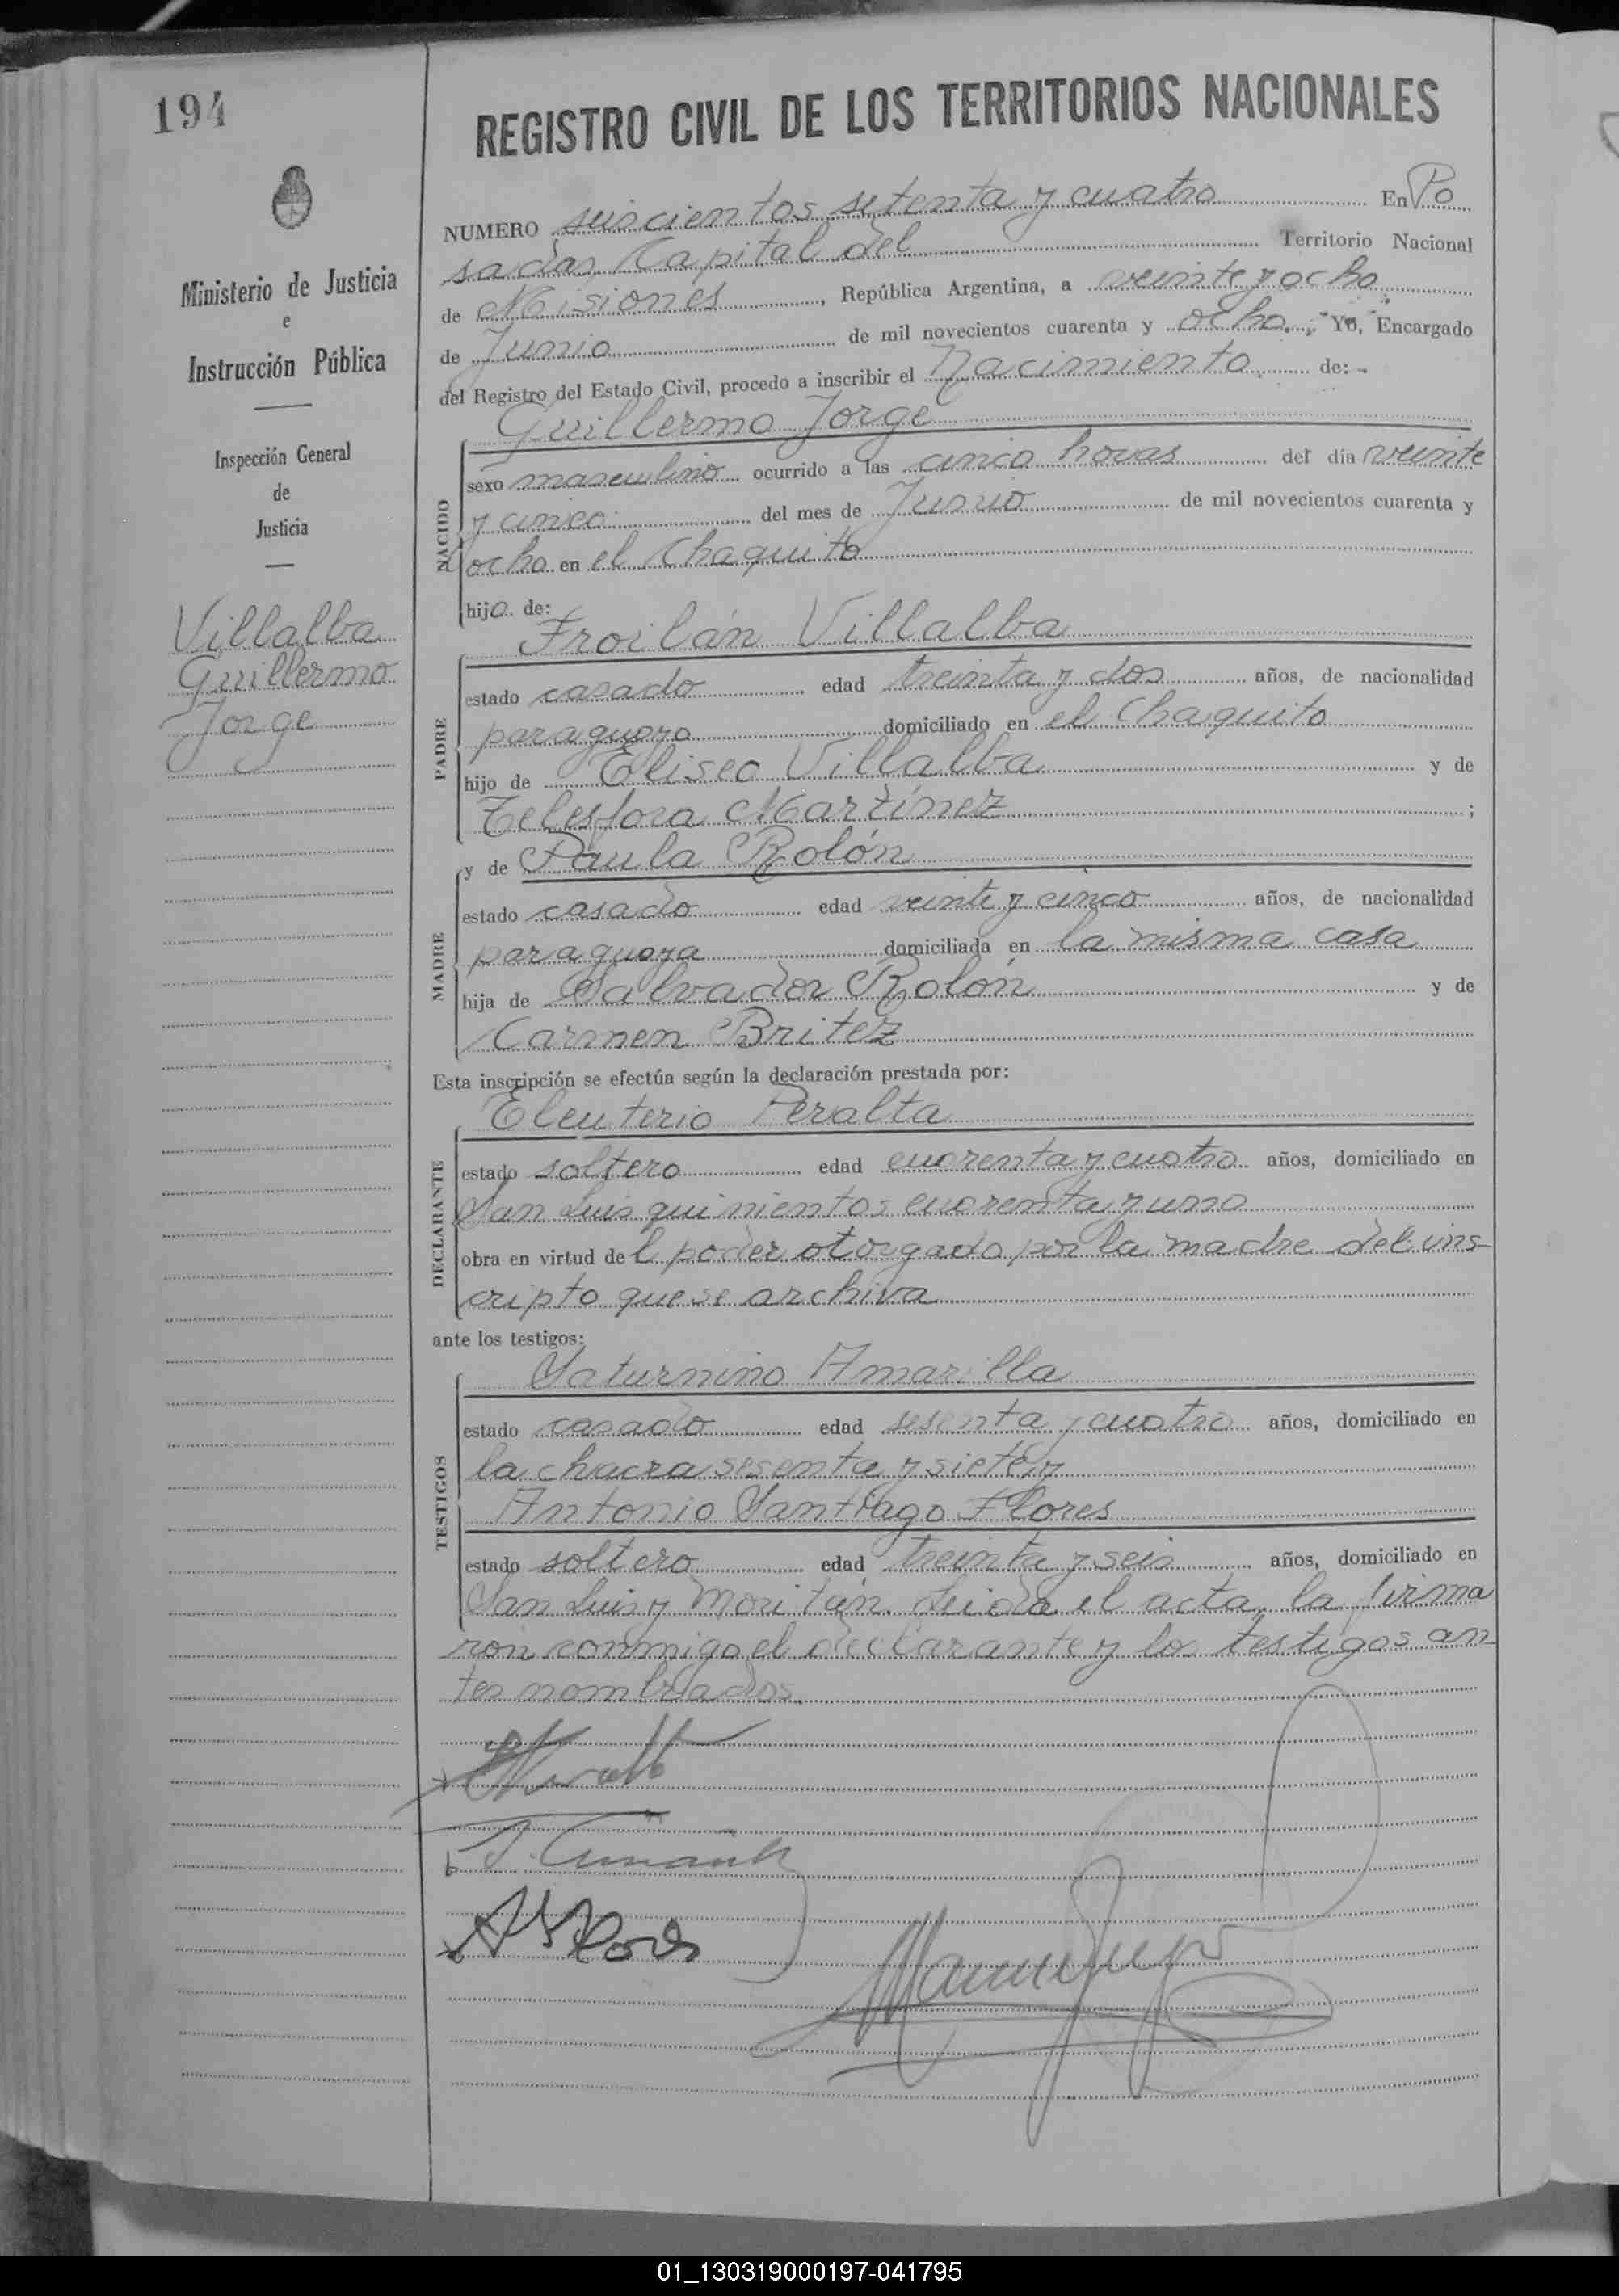 194
Ministerio de Justicia
e
Instrucción Pública
Inspección General
de
Justicia
Villalba
Guillermo
Jorge
REGISTRO CIVIL DE LOS TERRITORIOS NACIONALES
NUMERO seiscientos setenta y cuatro En Po
sadas, Capital del Territorio Nacional
de Misiones, República Argentina, a veinte y ocho
de Junio de mil novecientos cuarenta y ocho. Yo, Encargado
del Registro del Estado Civil, procedo a inscribir el Nacimiento de:
Guillermo Jorge
NACIDO
sexo masculino ocurrido a las cinco horas del día veinte
y cinco del mes de Junio de mil novecientos cuarenta y
ocho en el Chaquito
hijo de:
Froilán Villalba
PADRE
estado casado edad treinta y dos años, de nacionalidad
paraguaya domiciliado en el Chaquito
hijo de Eliseo Villalba y de
Telesfora Martínez;
y de Paula Rolón
MADRE
estado casado edad veinte y cinco años, de nacionalidad
paraguaya domiciliada en la misma casa
hija de Salvador Rolón y de
Carmen Britez
Esta inscripción se efectúa según la declaración prestada por:
Eleuterio Peralta
DECLARANTE
estado soltero edad cuarenta y cuatro años, domiciliado en
San Luis quinientos cuarenta y uno
obra en virtud del poder otorgado por la madre del ins-
cripto que se archiva
ante los testigos:
Saturnino Amarilla
TESTIGOS
estado casado edad sesenta y cuatro años, domiciliado en
la chacra sesenta y siete, y
Antonio Santiago Flores
estado soltero edad treinta y seis años, domiciliado en
San Luis y Moritán. Leida el acta, la firma
ron conmigo el declarante y los testigos an
tes nombrados.
01_130319000197-041795